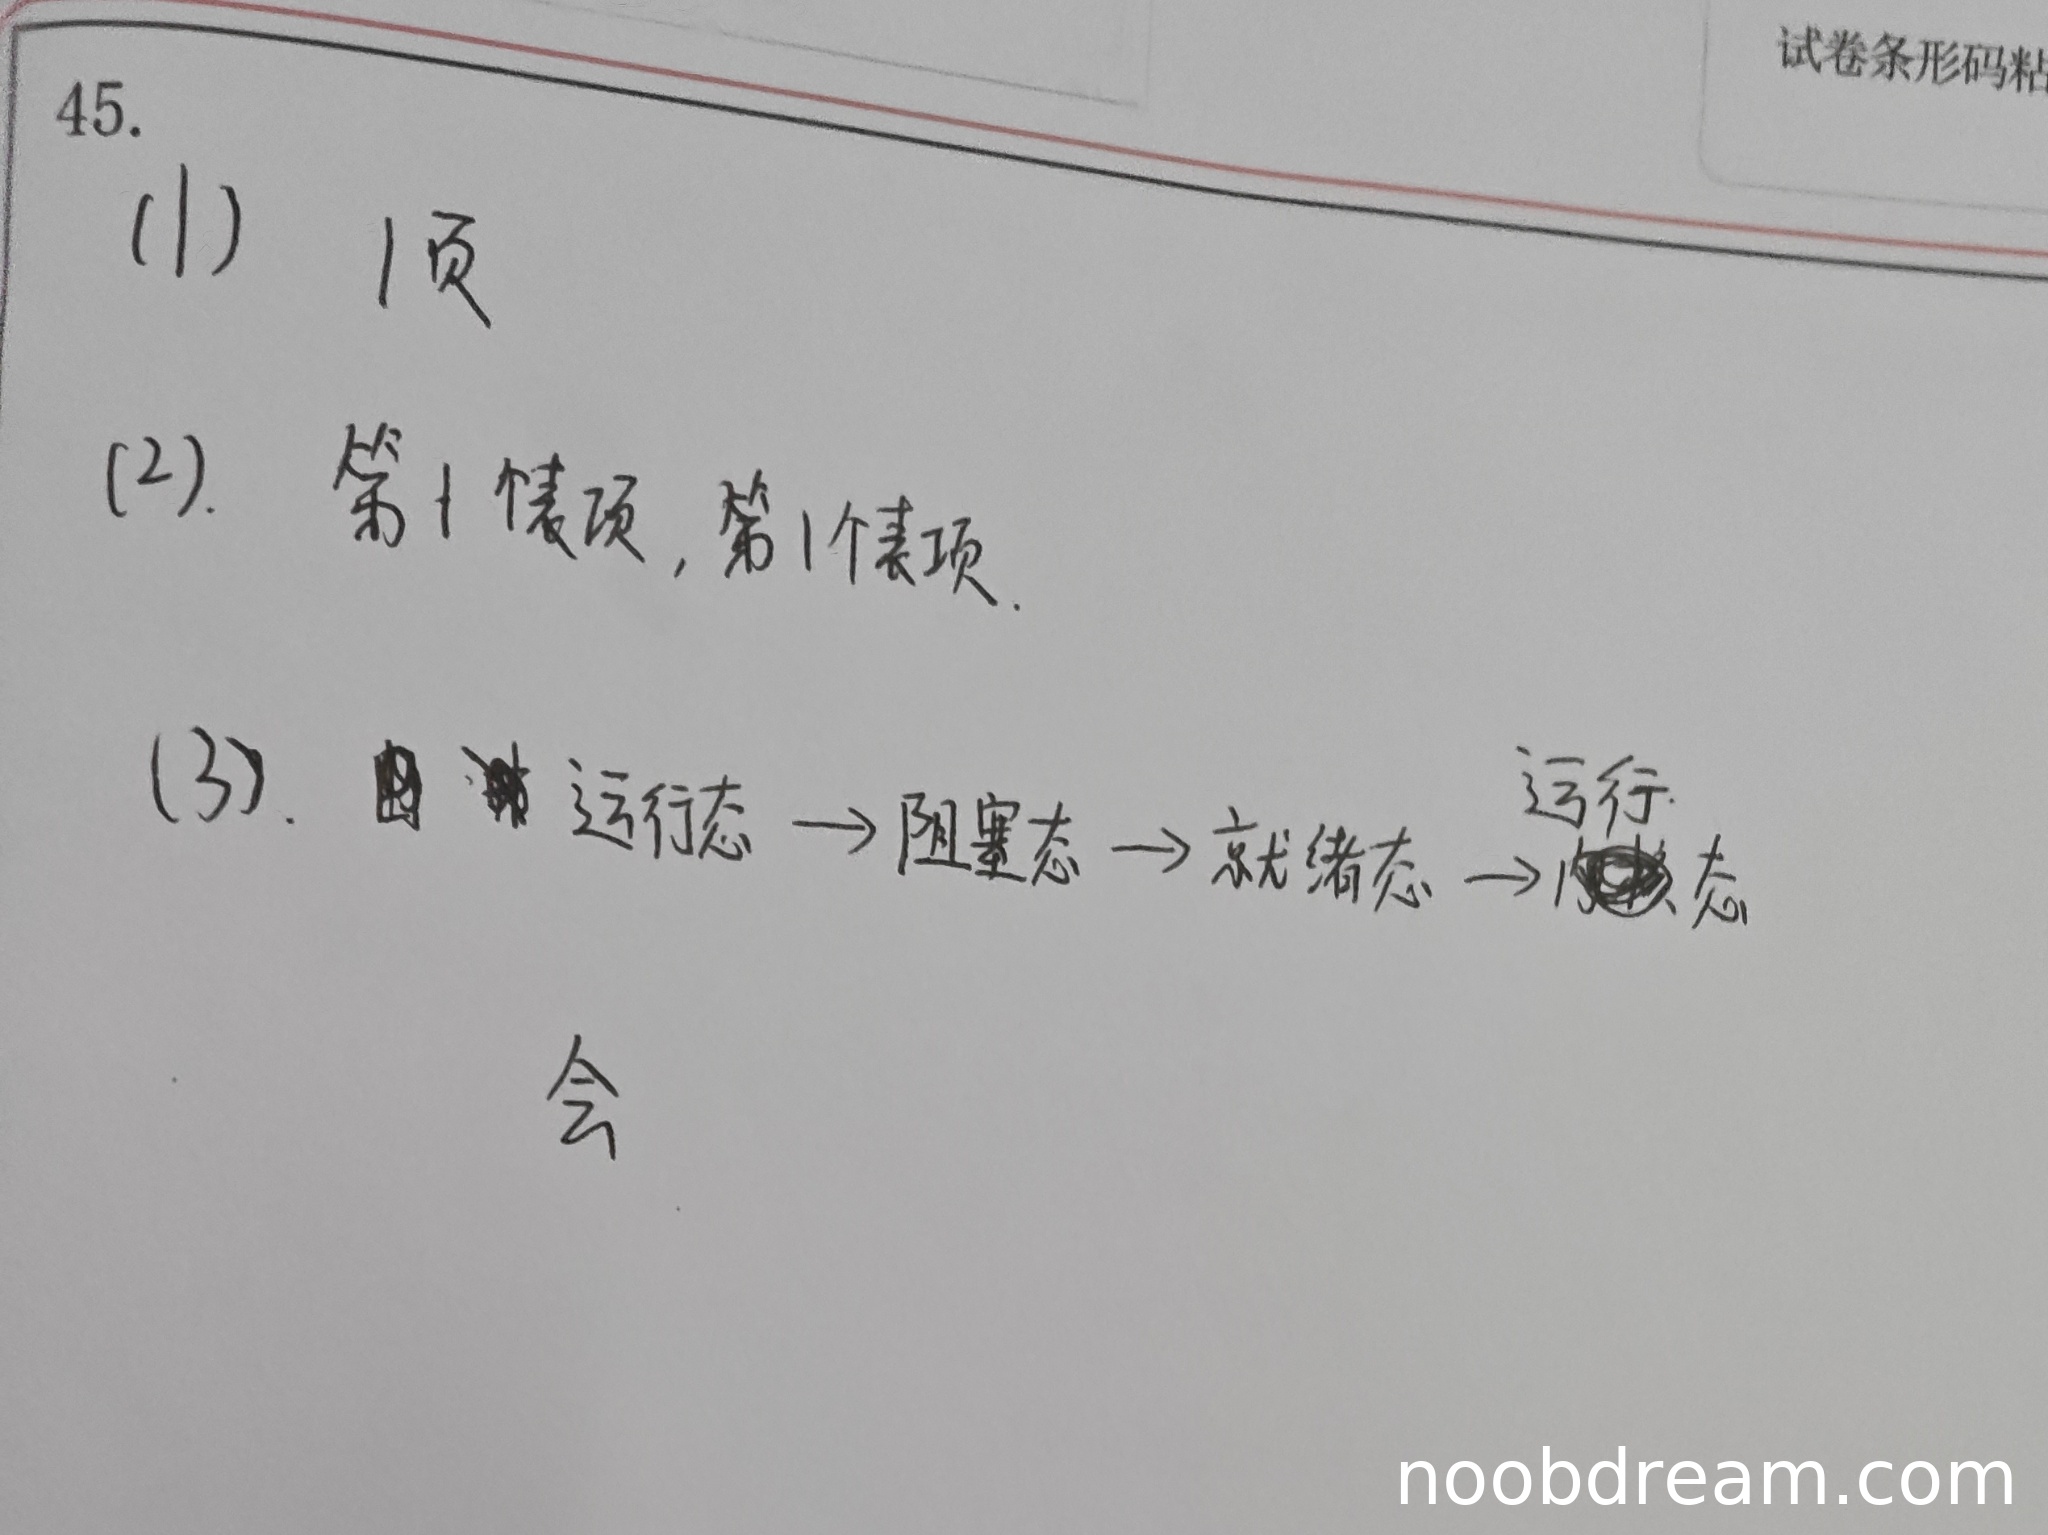 试卷条形码粘
45.
(1) 1页
(2). 第1个表项, 第1个表项.
(3). 运行态 → 阻塞态 → 就绪态 → 运行态
会
noobdream.com